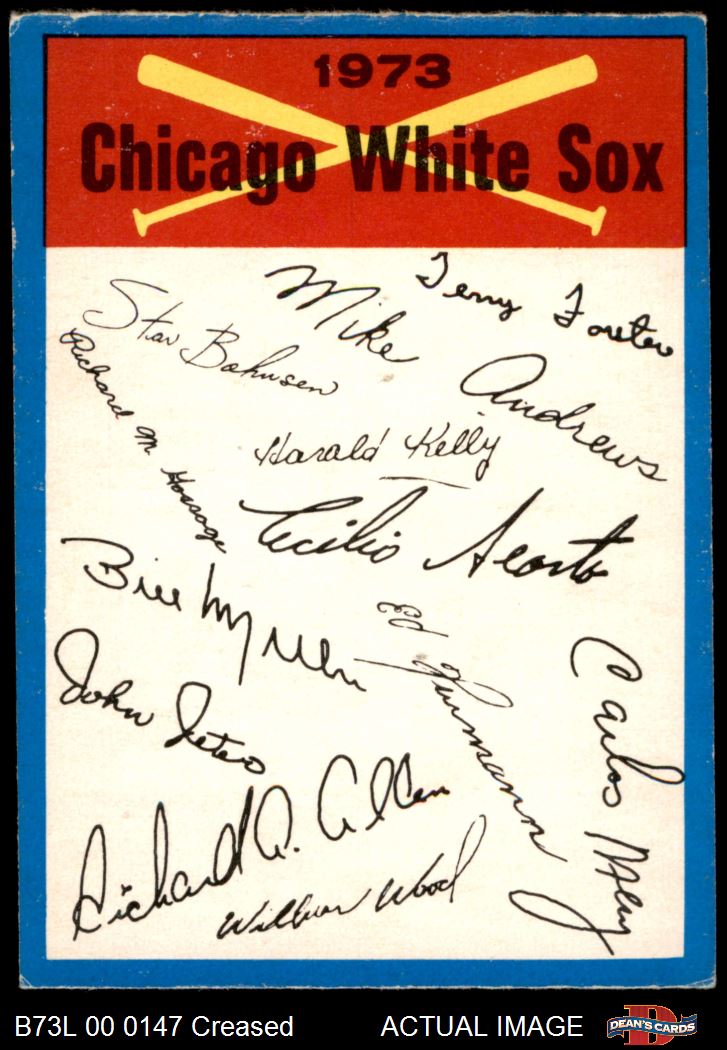 1973
Chicago White Sox
Terry Forster
Mike Andrews
Stan Bahnsen
Richard M Gossage
Harald Kelly
Cecilio Acosta
Bill Melton
Ed Herrmann
John Jeter
Carlos May
Richard A. Allen
Wilbur Wood
B73L 00 0147 Creased
ACTUAL IMAGE
DEAN'S CARDS